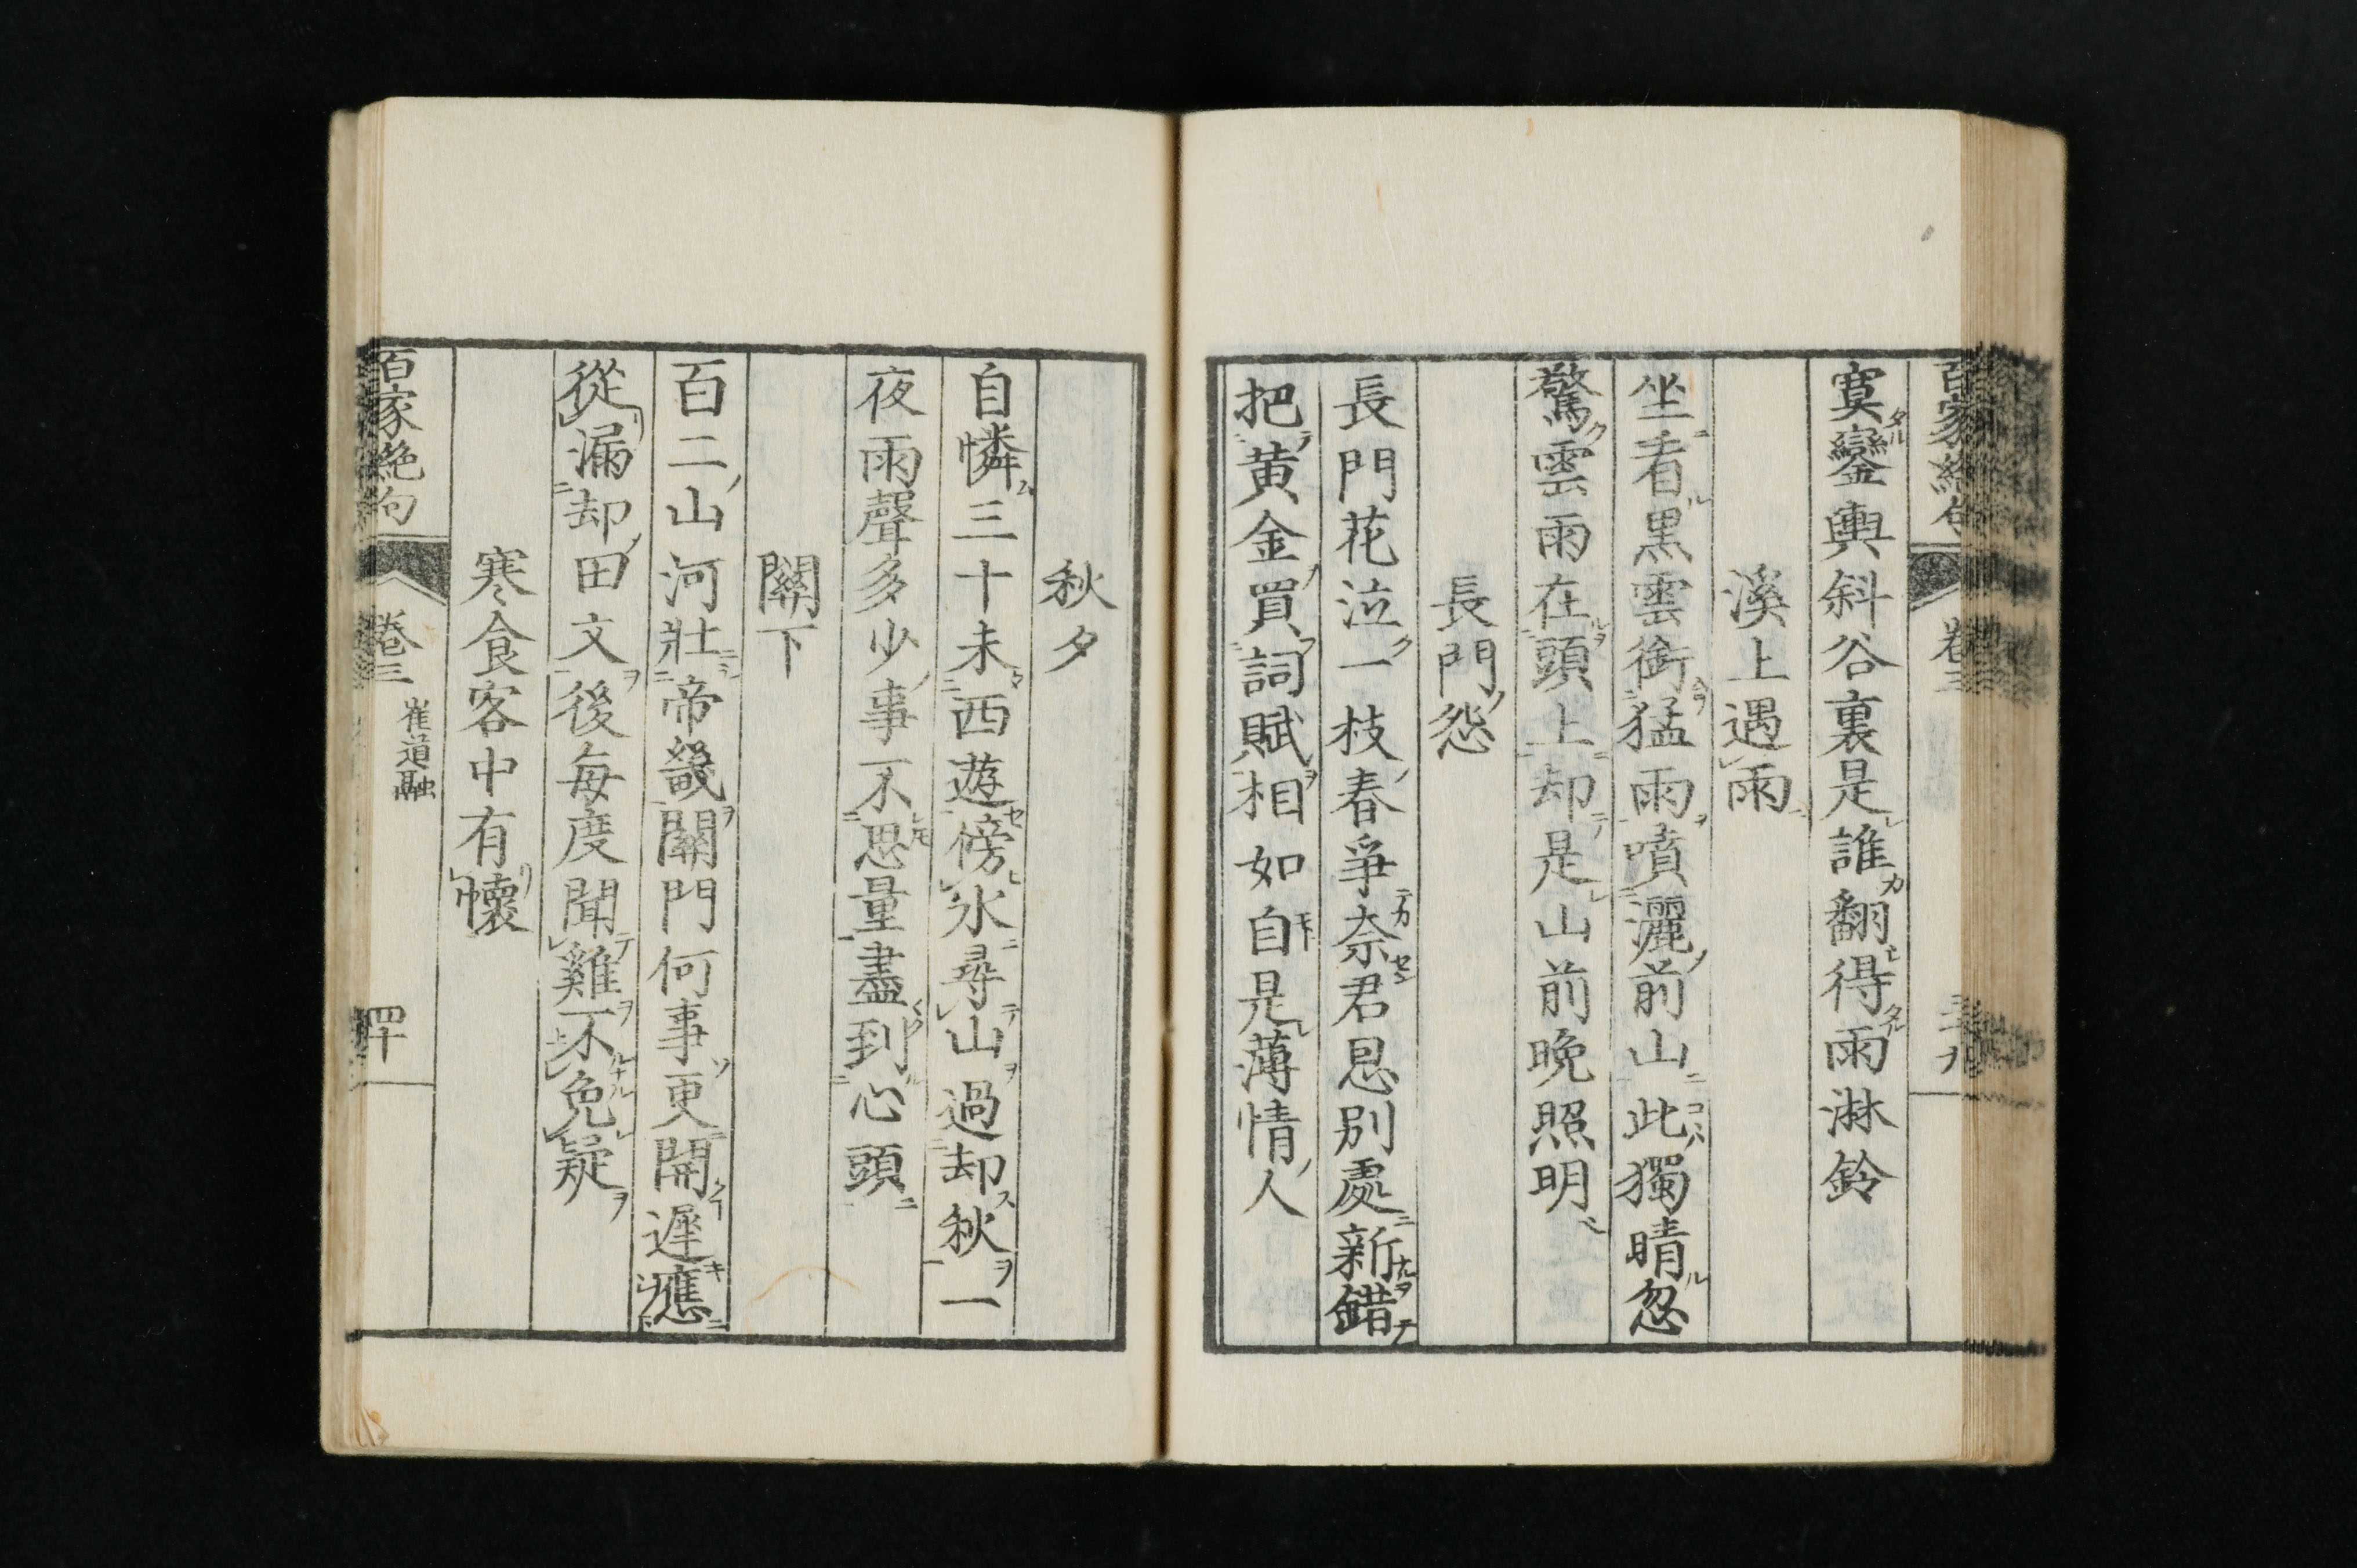 百家絶句 卷三 三十九
寞鑾輿斜谷裏是誰翻得雨淋鈴
溪上遇雨
坐看黒雲銜猛雨噴灑前山此獨晴忽
驚雲雨在頭上却是山前晩照明
長門怨
長門花泣一枝春爭奈君恩別處新錯
把黄金買詞賦相如自是薄情人
秋夕
自憐三十未西遊傍水尋山過却秋一
夜雨聲多少事不思量盡到心頭
關下
百二山河壯帝畿關門何事更開遲應
從漏却田文後毎度聞雞不免疑
寒食客中有懷
百家絶句 卷三 崔道融 四十